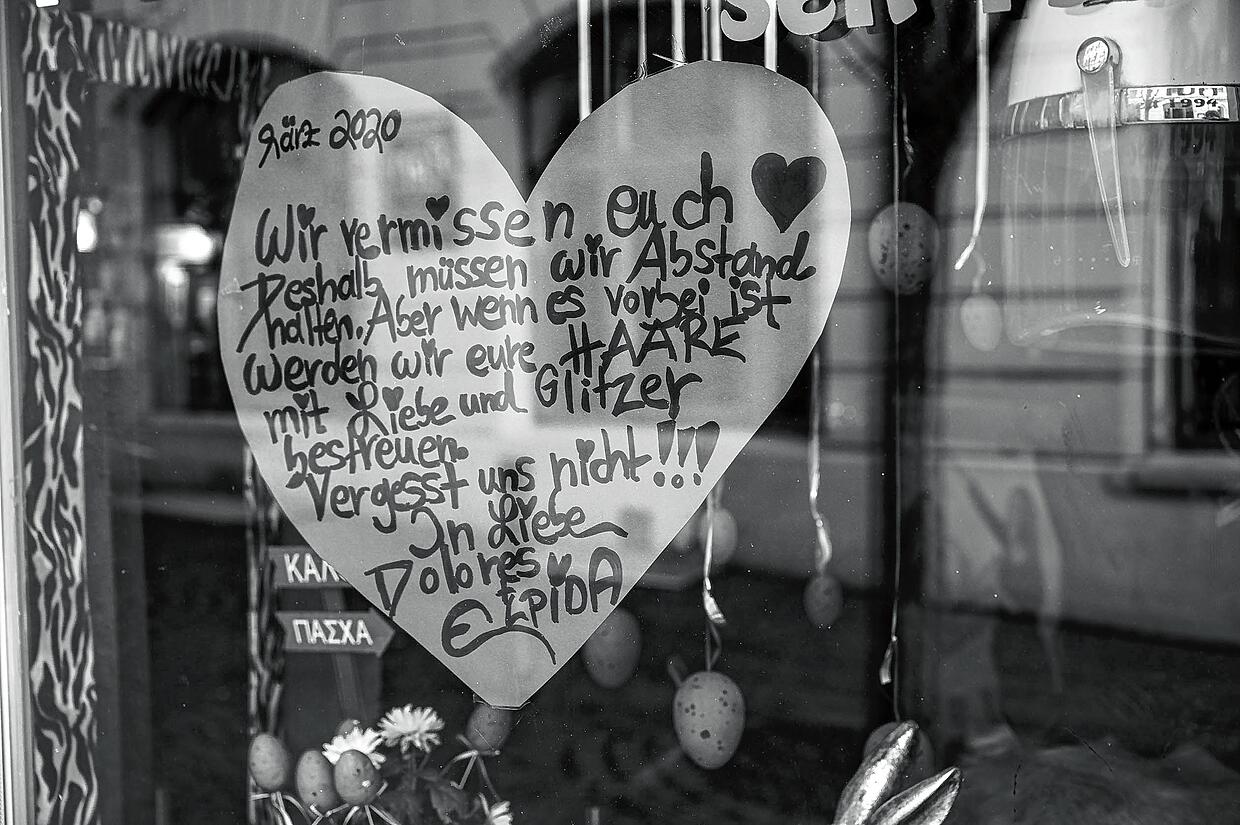 März 2020
Wir vermissen euch
Deshalb müssen wir Abstand
halten. Aber wenn es vorbei ist
werden wir eure HAARE
mit Liebe und Glitzer
bestreuen.
Vergesst uns nicht!!!
In Liebe
Dolores
ELPIDA
ΠΑΣΧΑ
1994